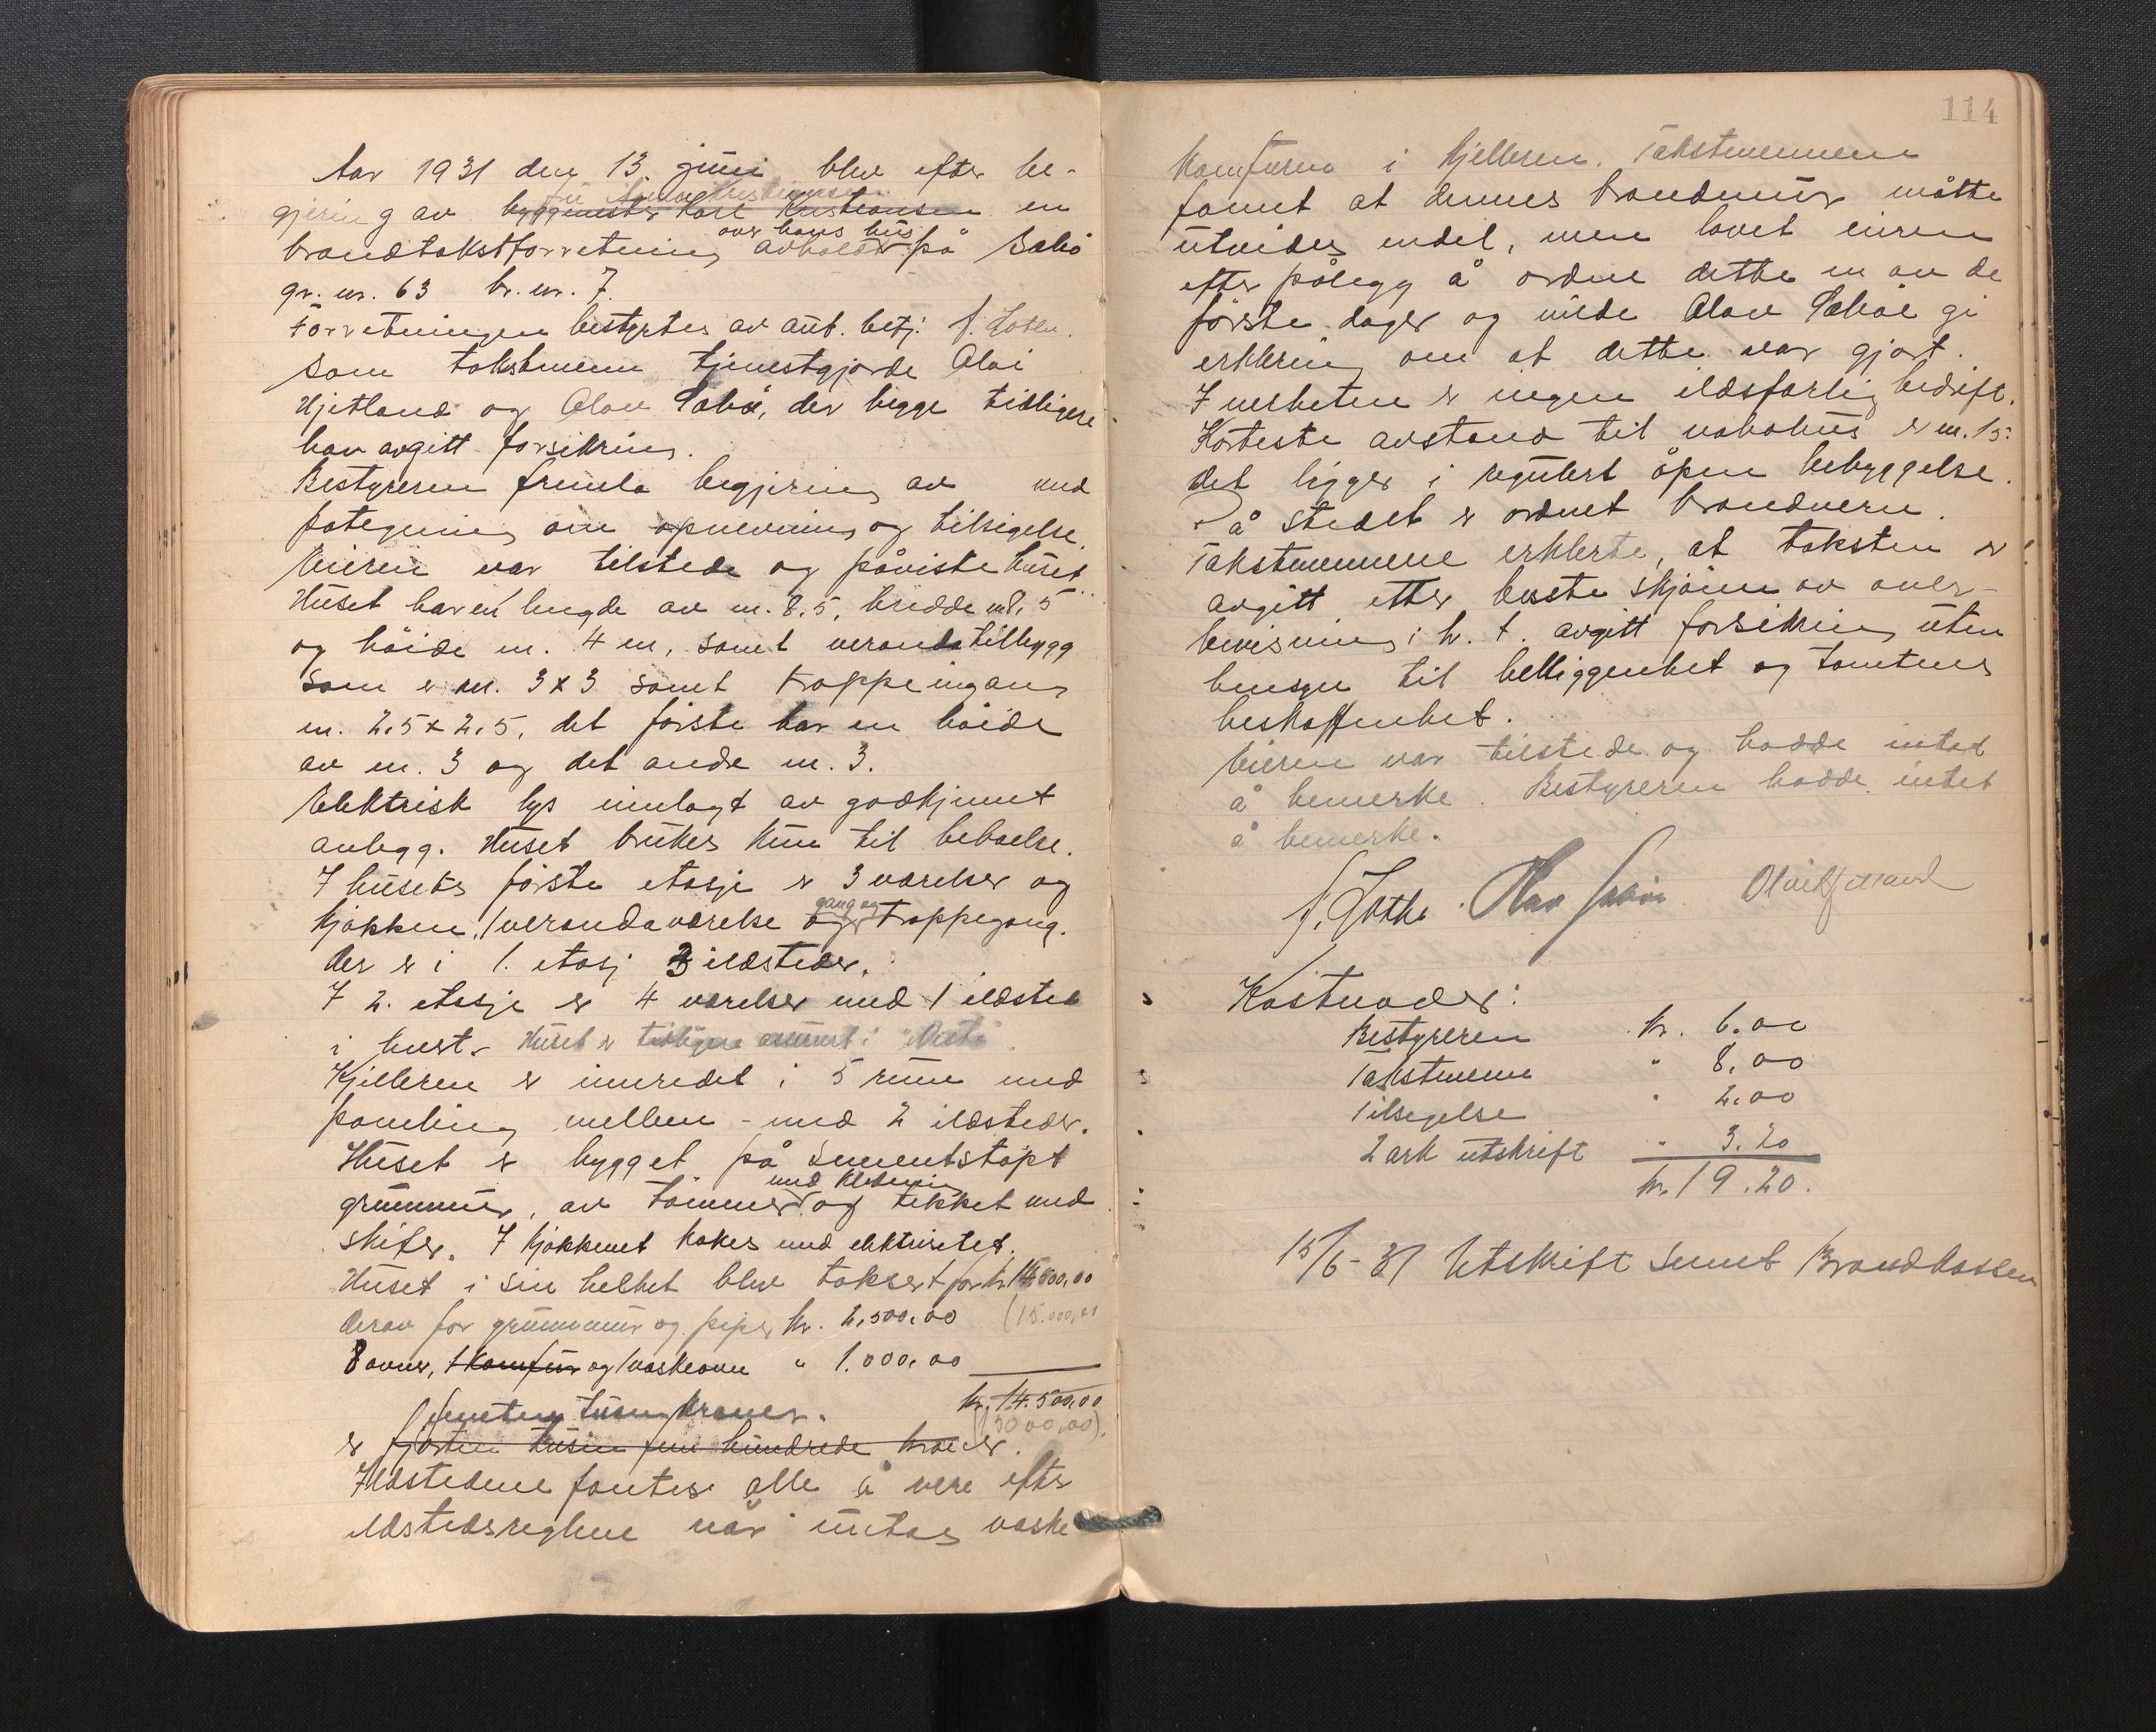 Aar 1931 den 13. juni blev efter be-
fru Anna Kristiansen
gjering av byggmester Karl Kristiansen en
over hans hus
brandtakstforretning avholdt på Sæbø
gr. nr. 63 br. nr. 7.
Forretningen bestyrtes av aut. betj. J. Lothe.
Som takstmenn tjenestgjorde Olai
Hjetland og Olav Sæbø, der begge tidligere
har avgitt forsikring.
Bestyreren fremla begjering av med
påtegning om opnevning og tilsigelse.
Eieren var tilstede og påviste huset.
Huset har en lengde av m. 8,5, bredde m 8,5
og høide m. 4 m, samt verandatilbygg
som er m. 3 x 3 samt trappeingang
m. 2,5 x 2,5, det første har en høide
av m. 3 og det andre m. 3.
Elektrisk lys innlagt av godkjennt
anlegg. Huset brukes kun til beboelse.
I husets første etasje er 3 værelser og
gang og
kjøkken, 1 verandaværelse og trappegang.
Der er i 1. etasj 3 ildsteder.
I 2. etasje er 4 værelser med 1 ildsted
i hvert. Huset er tidligere assurert i
Kjelleren er innredet i 5 rum med
paneling mellem - med 2 ildsteder.
Huset er bygget på sementstøpt
med kledning
grunnmur, av tømmer og tekket med
skifer. I kjøkkenet kokes med elektrisitet.
Huset i sin helhet blev taksert for kr. 14500,00
Derav for grunnmur og piper kr. 2,500,00 (15.000,00
8 ovner, 1 komfur og 1 vaskeovn " 1.000,00
kr. 14.500,00
femten tusen kroner. (15000,00).
er fjorten tusin fem hundrede kroner.
Ildstedene fantes alle å være efter
ildstedsreglene når untas vaske
114
komfuren i kjelleren. Takstmennene
fannt at dennes brandmur måtte
utvides endel, men lovet eieren
efter pålegg å ordne dette en av de
første dager og vilde Olav Sæbø gi
erklering om at dette var gjort.
I nerheten er ingen ildsfarlig bedrift.
Korteste avstand til nabohus er m. 15.
det ligger i regulert åpen bebyggelse.
På stedet er ordnet brandvern.
Takstmennene erklerte, at taksten er
avgitt etter beste skjønn av over-
bevisning i h. t. avgitt forsikring uten
hensyn til beliggenhet og tomtens
beskaffenhet.
Eieren var tilstede og hadde intet
å bemerke. Bestyreren hadde intet
å bemerke.
J. Lothe. Olav Sæbø Olai Hjetland
Kostnader:
Bestyreren kr. 6.00
Takstmenn " 8,00
Tilsigelse " 2.00
2 ark utskrift " 3.20
kr. 19.20.
15/6-31 Utskrift sennt Brandkassen